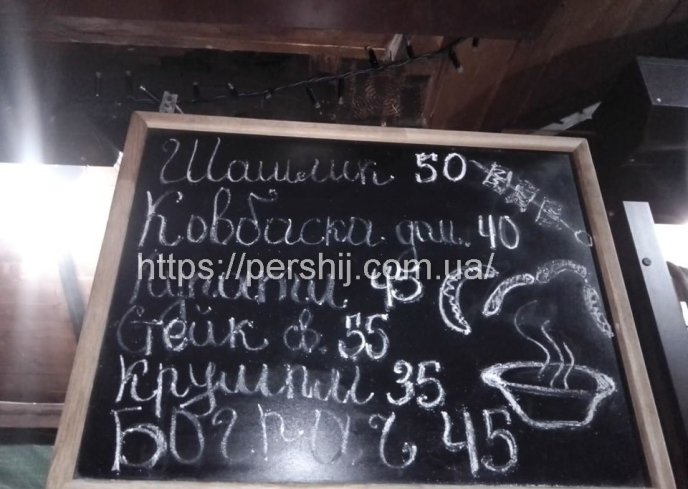 Шашлик 50
Ковбаска дом. 40
https://pershij.com.ua/
Купати 45
Стейк св. 55
Крумплі 35
Бограч 45